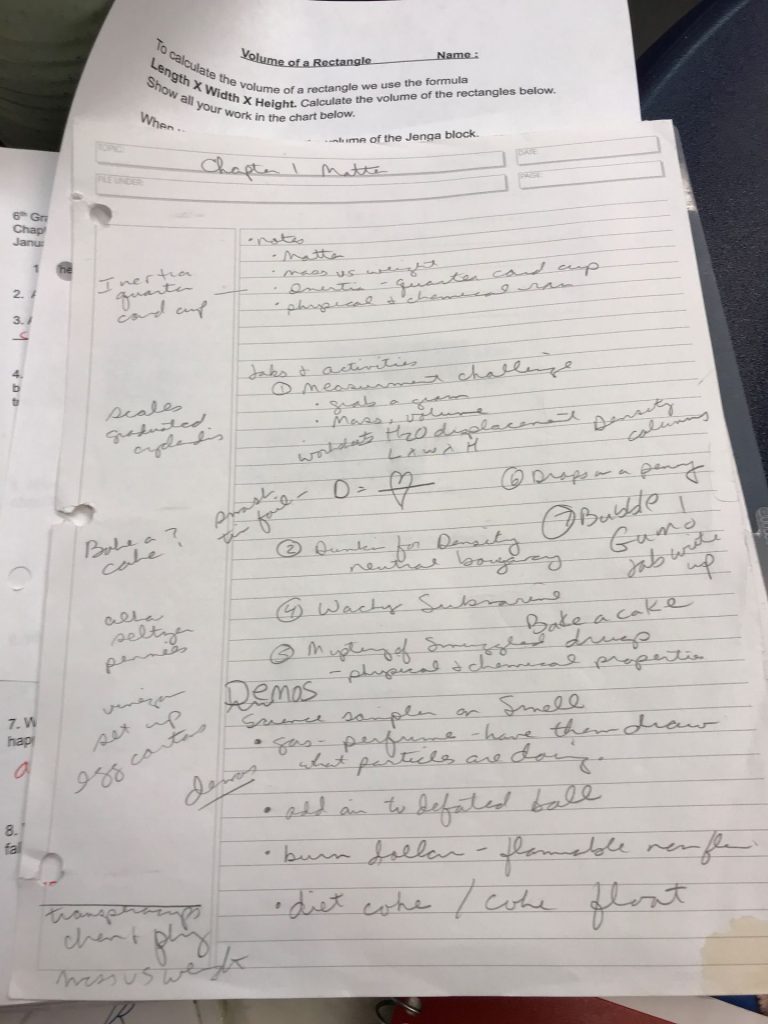 Volume of a Rectangle Name :
To calculate the volume of a rectangle we use the formula
Length X Width X Height. Calculate the volume of the rectangles below.
Show all your work in the chart below.
When
volume of the Jenga block.
TOPIC:
Chapter 1 Matter
DATE:
FILE UNDER:
PAGE:
6th Gr
Chap
Janu
1
2.
3.
4.
b
7. W
hap
a
8.
fal
• notes
• Matter
• mass vs weight
• Inertia - quarter card cup
• physical + chemical
Inertia
quarter
card cup
Labs + activities
① Measurment challenge
• grab a gram
• Mass, volume
H2O displacement
L x W x H
Density
columns
scales
graduated
cylinders
D =
⑥ Drops on a penny
Bake a ?
cake
② Dunkin for Density
neutral
⑦ Bubble
Gumo
lab write
up
④ Wacky Submarine
Bake a cake
alka
seltzer
pennies
③ Mystery of Smuggled drugs
- physical + chemical properties
Demos
vinegar
set up
egg cartons
Science sampler on Smell
• gas - perfume - have them draw
what particles are doing.
demos
• add air to deflated ball
• burn dollar - flammable
• diet coke / coke float
chem + phy
mass vs weight